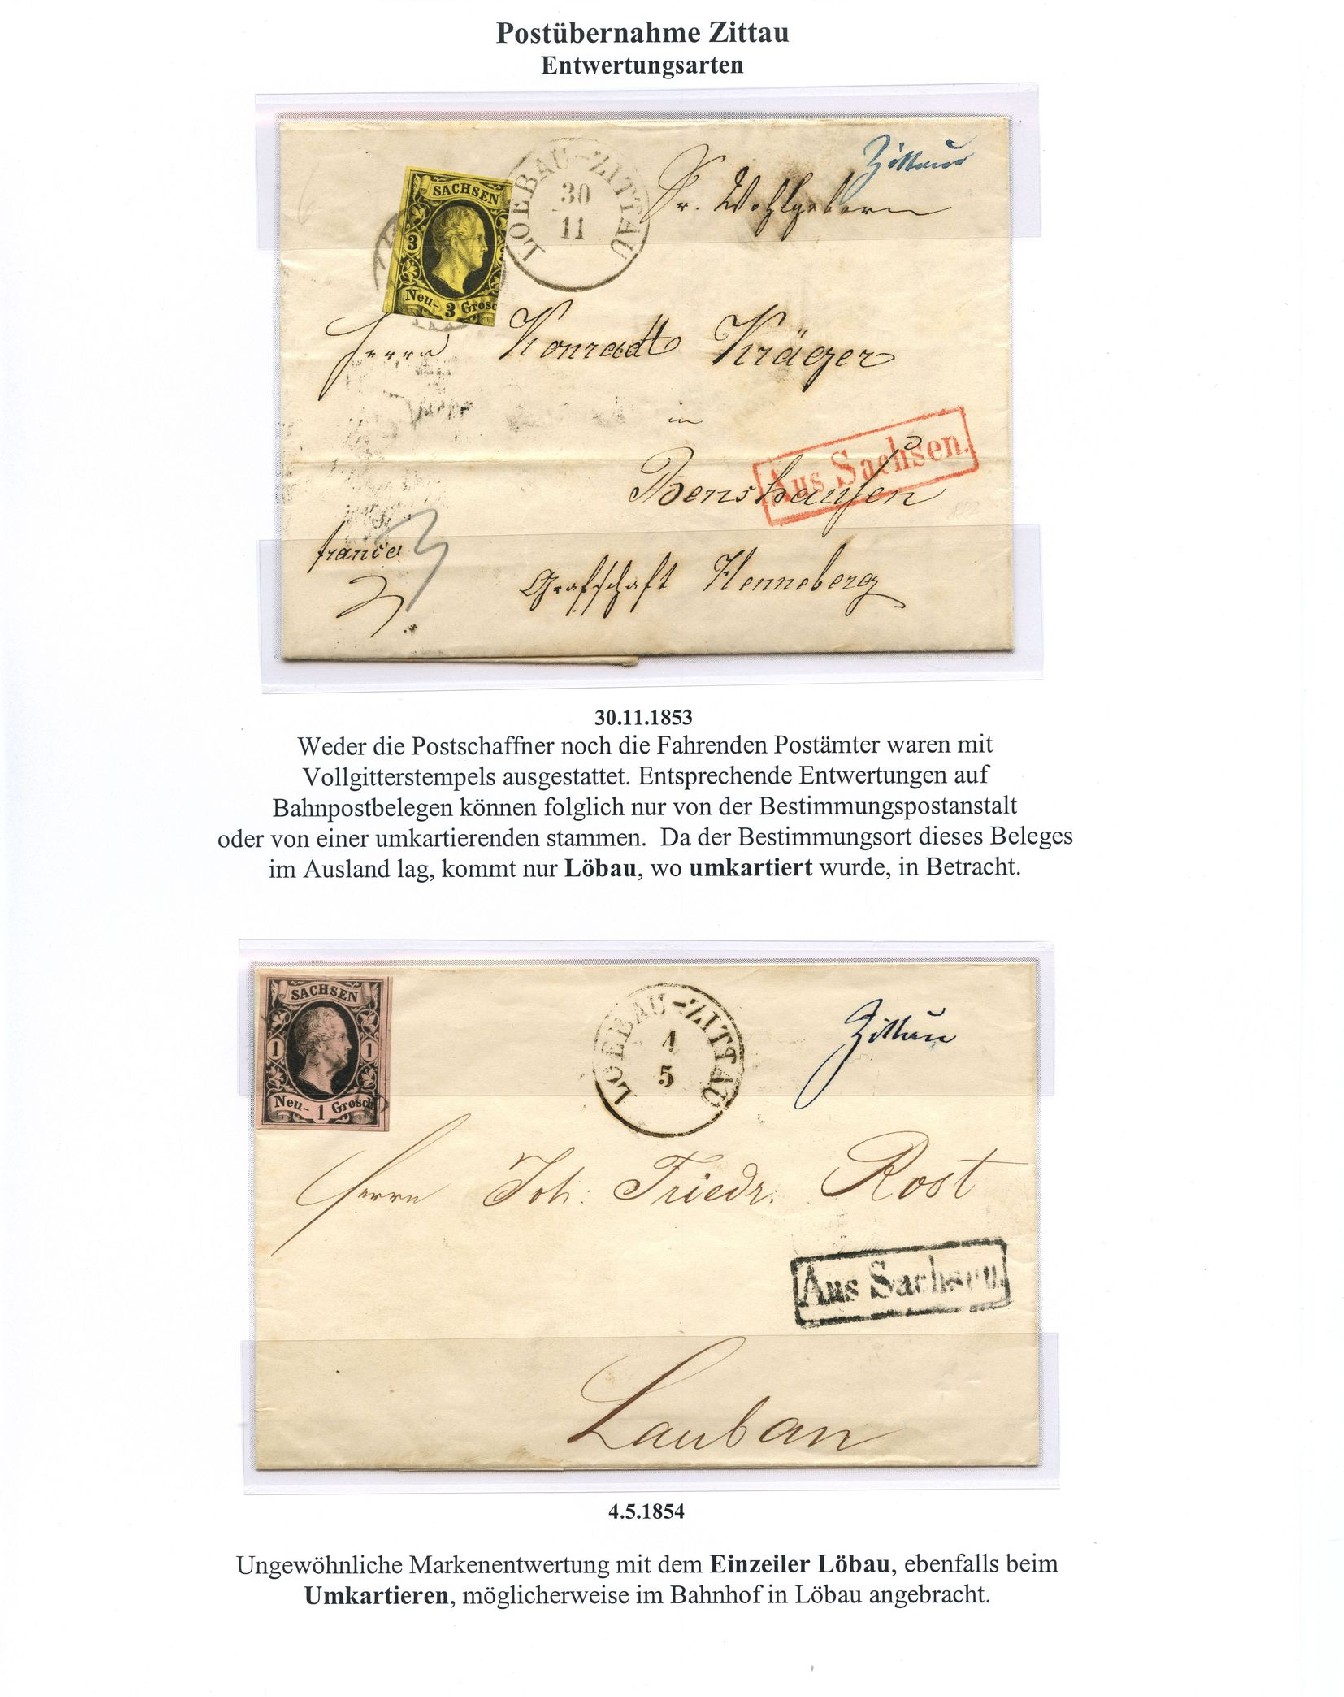 Postübernahme Zittau
Entwertungsarten
Zittau
SACHSEN
3
Neu- 3 Grosc
LOEBAU-ZITTAU
30
11
Sr. Wohlgeborn
Herrn Konradt Kräger
in
Benshausen
Aus Sachsen.
franco
3
Grafschaft Henneberg
30.11.1853
Weder die Postschaffner noch die Fahrenden Postämter waren mit
Vollgitterstempels ausgestattet. Entsprechende Entwertungen auf
Bahnpostbelegen können folglich nur von der Bestimmungspostanstalt
oder von einer umkartierenden stammen. Da der Bestimmungsort dieses Beleges
im Ausland lag, kommt nur Löbau, wo umkartiert wurde, in Betracht.
SACHSEN
1 1
Neu- 1 Grosch
LOEBAU-ZITTAU
4
5
Zittau
Herrn Joh: Friedr. Rost
Aus Sachsen.
Lauban
4.5.1854
Ungewöhnliche Markenentwertung mit dem Einzeiler Löbau, ebenfalls beim
Umkartieren, möglicherweise im Bahnhof in Löbau angebracht.